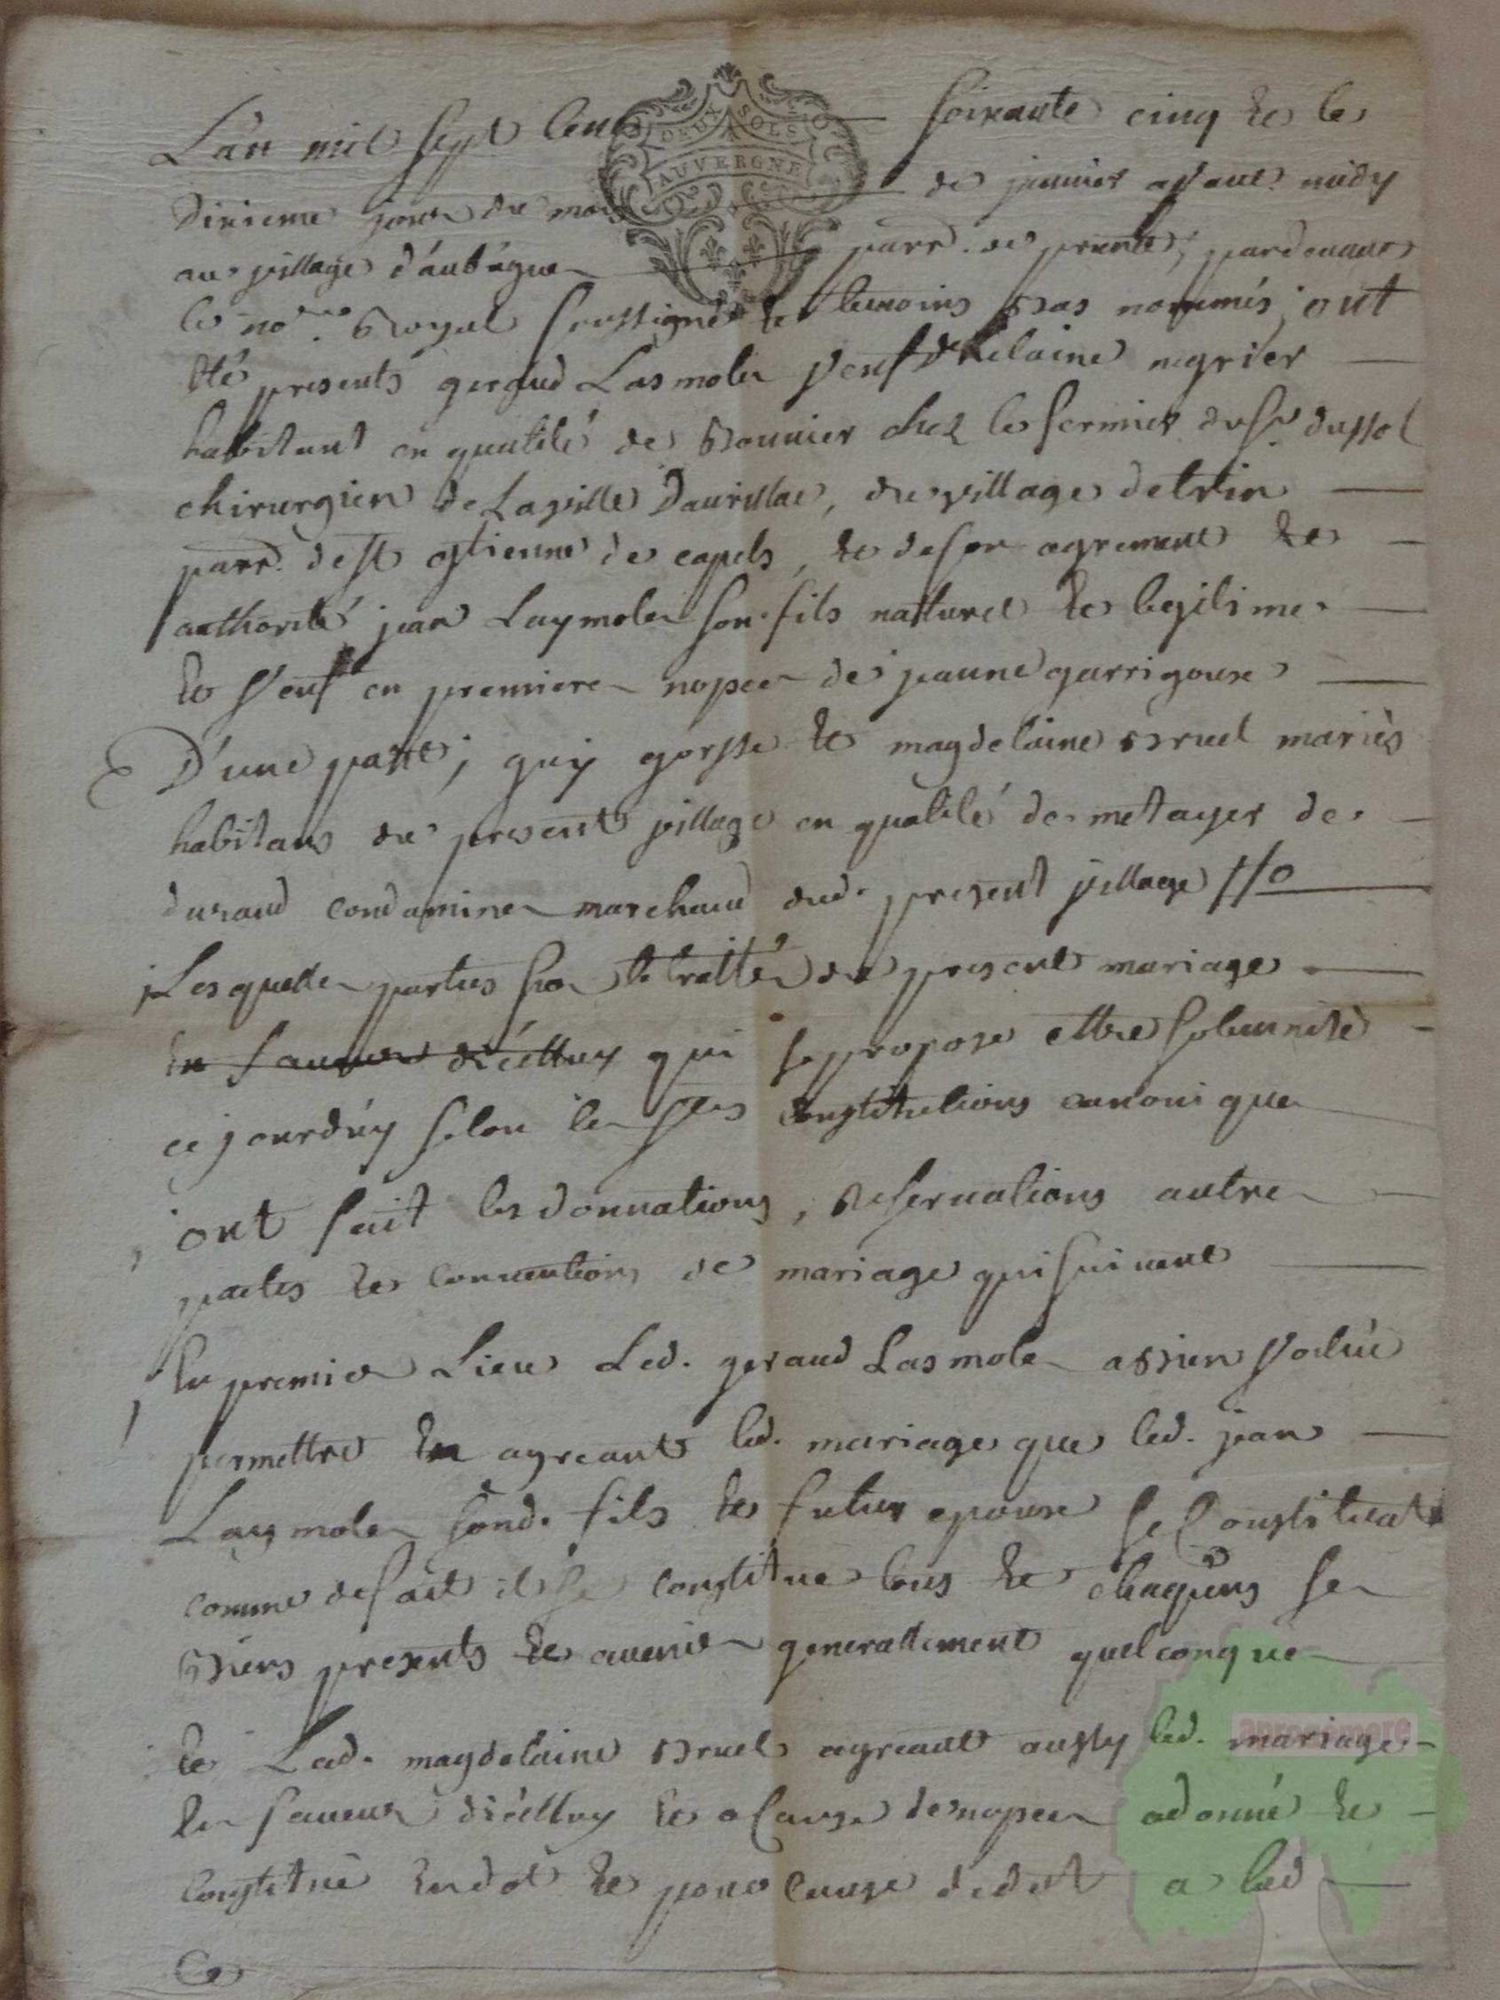 L'an mil sept cent soixante cinq et le
DEUX SOLS
AUVERGNE
dixieme jour du mois de janvier avant midy
au village d'aubugue parr. de prunet, pardevant
le no.re Royal soussigné et temoins bas nommés, ont
été presents geraud Lasmole veuf d'helaine negrier
habitant en qualité de bouvier chez le fermier du sr. dussol
chirurgien de La ville d'aurillac, du village de trin
parr. de st etienne de capels, et de son agrement et
authorité jean Laymole son fils naturel et legitime
et veuf en premiere nopce de jeanne garrigoux
D'une part, guy gorsse et magdelaine bruel mariès
habitans du present village en qualité de metayer de
durand condamine marchand dud. present village
Lesquelles parties sur le traitté du present mariage
en faveur d'icelluy qui se propose ettre solemnisé
ce jourd'uy selon les stes constitutions canonique
ont fait les donnations, reservations autre
pactes et conventions de mariage qui suivent
En premier Lieu Led. geraud Lasmole a bien voulu
permettre en agreant led. mariage que led. jean
Laymole sond. fils et futur epoux se Constituat
comme de fait il se constitue tous et chaquns se
biens presents et avenir generallement quelconque
et Lad. magdelaine bruel agreant aussy led. mariage
En faveur d'icelluy et a Cause de nopce a donné et
Constitué En dot et pour Cause de dot a lad
apropomore